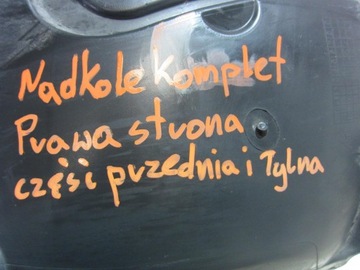 Nadkole komplet
Prawa strona
część przednia i Tylna